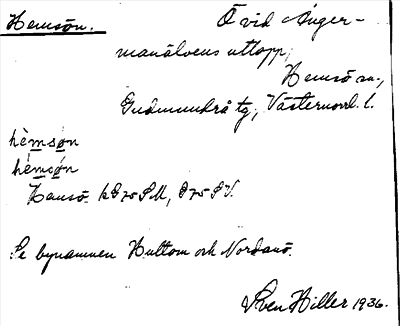 Hemsön. Ö vid Ånger-
manälvens utlopp,
Hemsö sn,
Gudmundrå tg, Västernorrl. l.
hèmsøn
hèmsǿn
Hamsö
Se bynamnen Hultom och Nordanö.
Sven Hiller 1936.